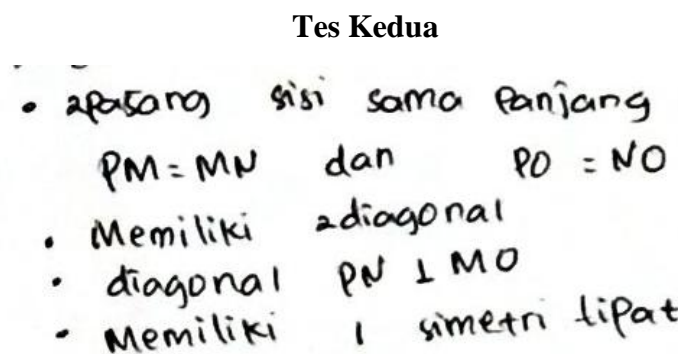 Tes Kedua
• 2pasang sisi sama panjang
PM = MN dan PO = NO
• Memiliki 2diagonal
• diagonal PN ⊥ MO
• Memiliki 1 simetri lipat